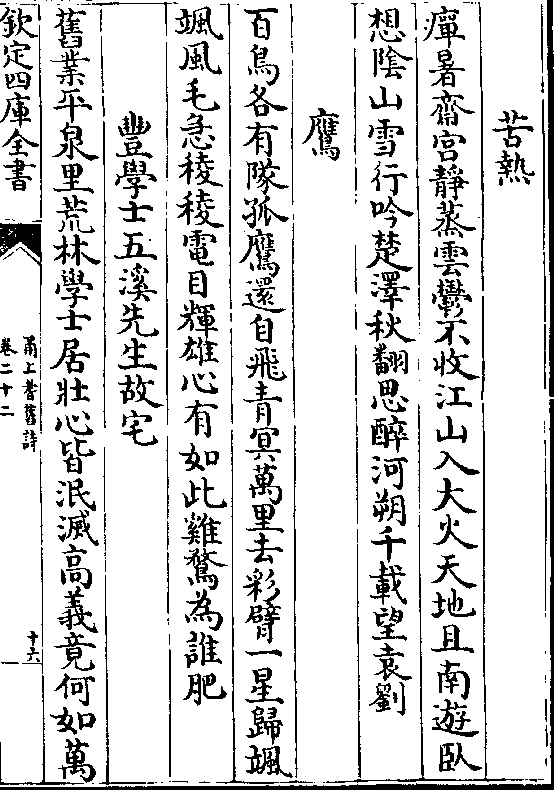 苦熱
癉暑齋宫静蒸雲鬱不收江山入大火天地且南遊臥
想陰山雪行吟楚澤秋翻思醉河朔千載望袁劉
鷹
百鳥各有隊孤鷹還自飛青冥萬里去彩臂一星歸颯
颯風毛急稜稜電目輝雄心有如此雞鶩為誰肥
豐學士五溪先生故宅
舊業平泉里荒林學士居壯心皆泯滅高義竟何如萬
欽定四庫全書
甬上耆舊詩
卷二十二
十六